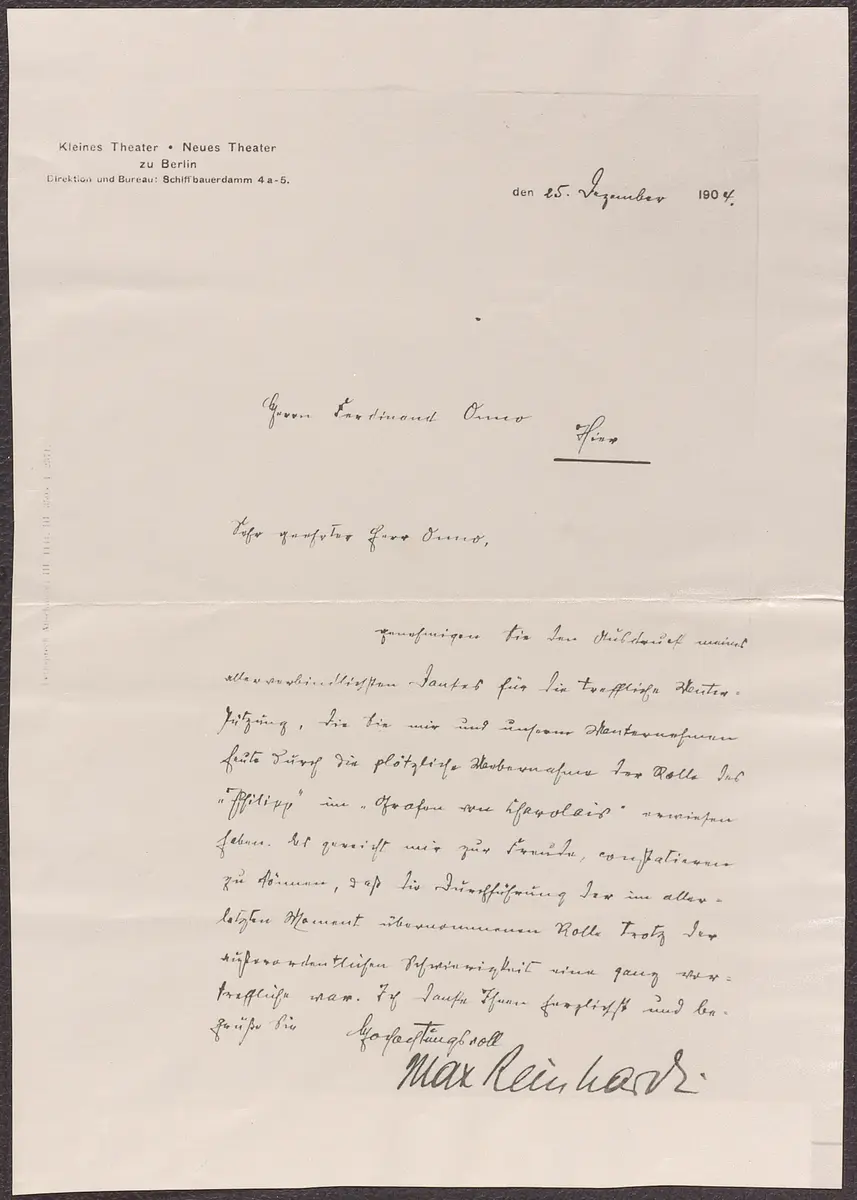 Kleines Theater • Neues Theater
zu Berlin
Direktion und Bureau: Schiffbauerdamm 4a-5.
den 25. Dezember 1904.
Herrn Ferdinand Onno
Hier
Sehr geehrter Herr Onno,
genehmigen Sie den Ausdruck meines
allerverbindlichsten Dankes für die treffliche Unter-
stützung, die Sie mir und unserm Unternehmen
heute durch die plötzliche Uebernahme der Rolle des
"Philipp" im „Grafen von Charolais" erwiesen
haben. Es gereicht mir zur Freude, constatieren
zu können, daß die Durchführung der im aller-
letzten Moment übernommenen Rolle trotz der
außerordentlichen Schwierigkeit eine ganz vor-
treffliche war. Ich danke Ihnen herzlichst und be-
grüße Sie
Hochachtungsvoll
Max Reinhardt.